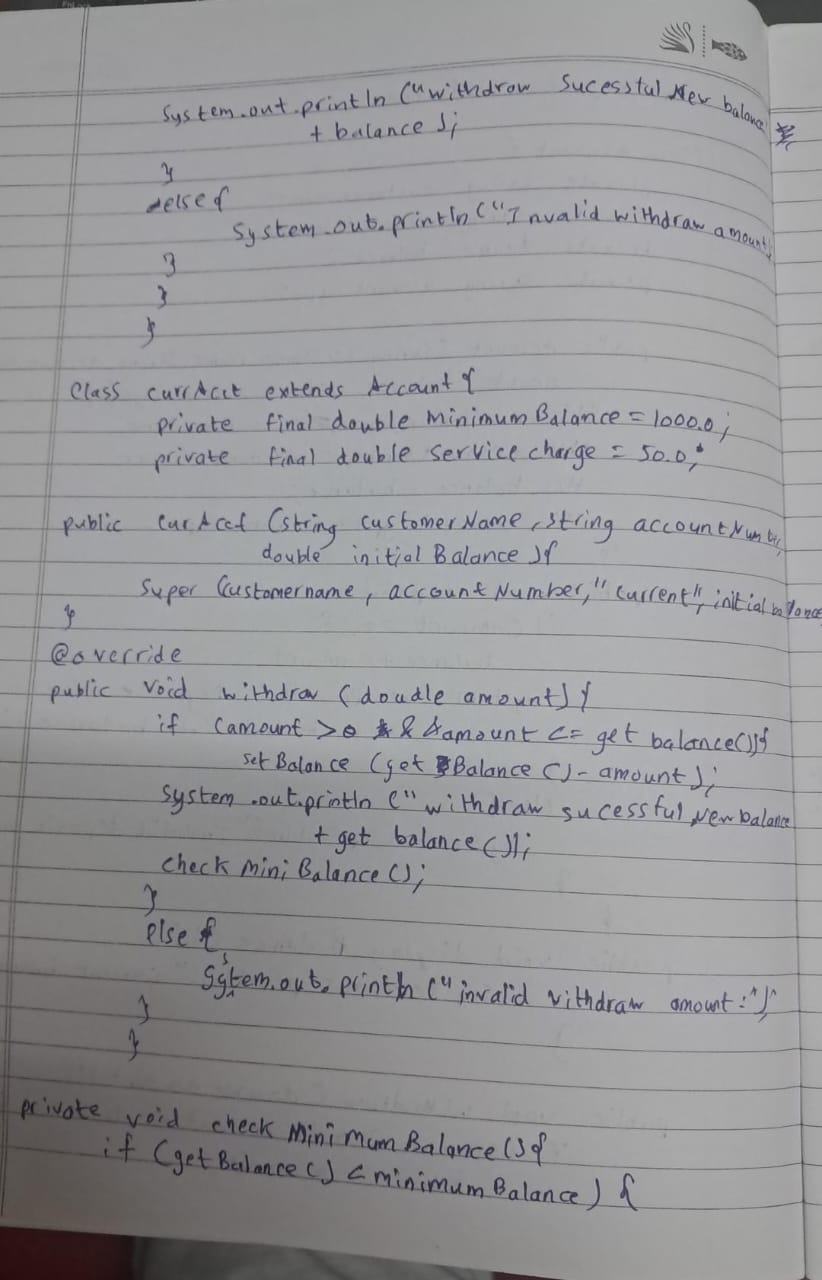 System.out.println ("withdraw Sucessful New balance
+ balance );
}
else{
System.out.println ("Invalid withdraw amount
}
}
}
Class currAcct extends Account {
private final double MinimumBalance = 1000.0;
private final double Service charge = 50.0;
public CurAcct (String CustomerName, String accountNumber,
double initial Balance ){
Super Customername, account Number, "Current", initial balance
}
@override
public void withdraw (doudle amount) {
if (amount >0 && amount <= get balance()){
set Balance (get Balance () - amount );
System.out.println ("withdraw sucessful New balance
+ get balance ());
check Mini Balance ();
}
else {
System.out.println ("invalid withdraw amount:");
}
}
private void check MinimumBalance (){
if (get Balance () < minimum Balance ) {